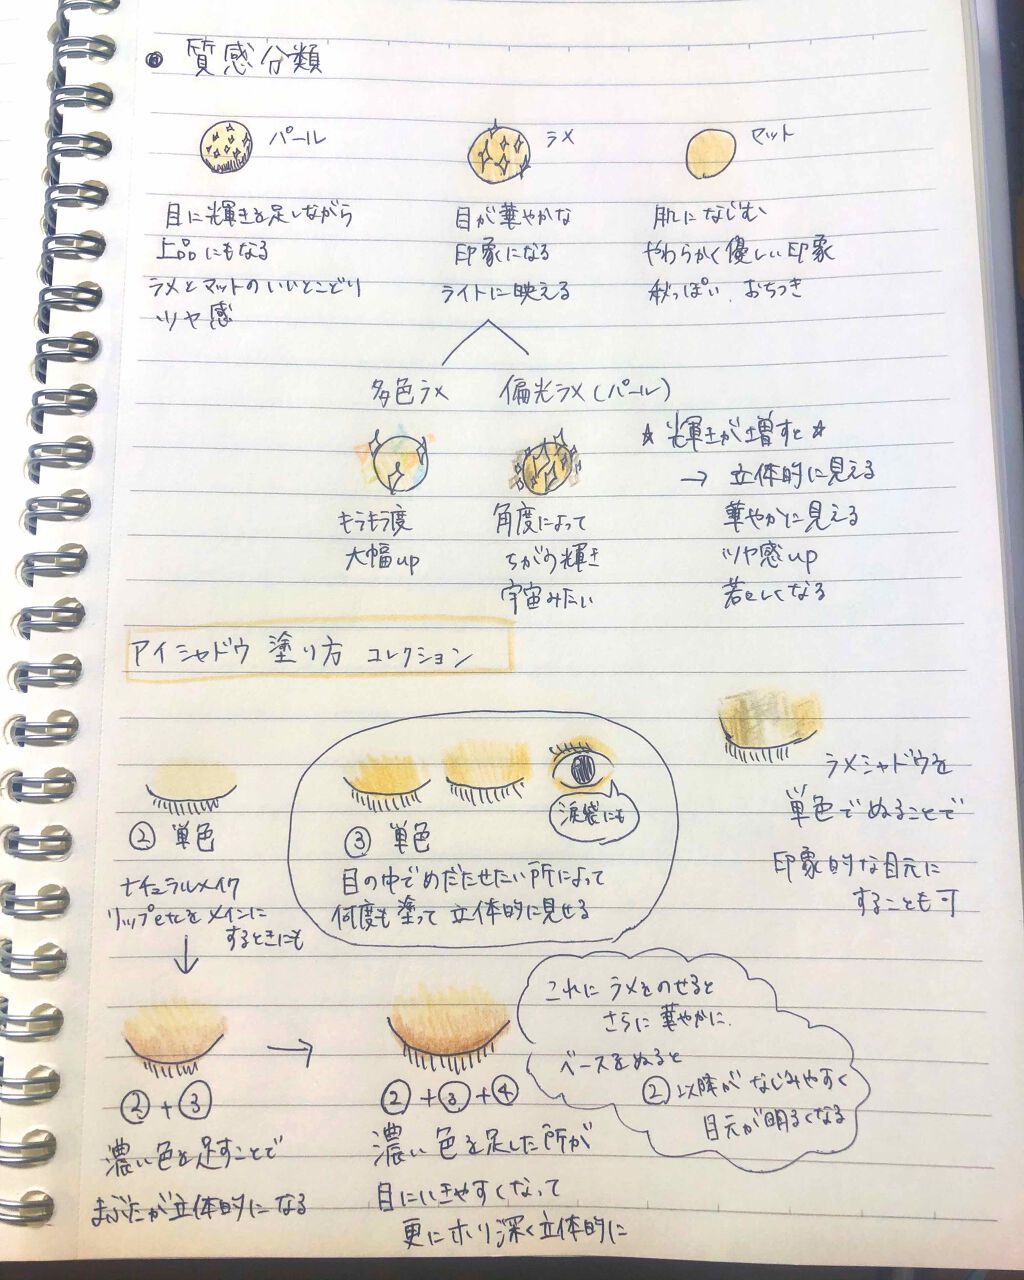 質感分類
パール
目に輝きを足しながら
上品にもなる
ラメとマットのいいとこどり
ツヤ感
ラメ
目が華やかな
印象になる
ライトに映える
マット
肌になじむ
やわらかく優しい印象
秋っぽい、おちつき
多色ラメ
キラキラ度
大幅up
偏光ラメ(パール)
角度によって
ちがう輝き
宇宙みたい
☆輝きが増すと☆
→ 立体的に見える
華やかに見える
ツヤ感up
若々しくなる
アイシャドウ 塗り方 コレクション
② 単色
ナチュラルメイク
リップetcをメインに
するときにも
涙袋にも
③ 単色
目の中でめだたせたい所によって
何度も塗って立体的に見せる
ラメシャドウを
単色でぬることで
印象的な目元に
することも可
②+③
濃い色を足すことで
まぶたが立体的になる
②+③+④
濃い色を足した所が
目にいきやすくなって
更にホリ深く立体的に
これにラメをのせると
さらに華やかに.
ベースをぬると
②以降がなじみやすく
目元が明るくなる